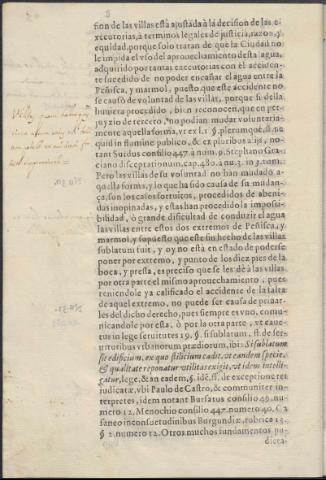 sion de las villas està ajustada à la decision de las e-
xecutorias, à terminos legales de justicia, razon, y
equidad, porque solo tratan de que la Ciudad no
le impida el vso del aprouechamiento desta agua,
adquirido por tantas executorias con el acciden-
te sucedido de no poder encañar el agua entre la
Peñisca, y marmol, puesto que este accidente no
se causò de voluntad de las villas, porque si della
huuiera procedido, biẽ reconocen, que en per-
juyzio de tercero, no podian mudar voluntaria-
mente aquella forma, vt ex l. 1. §. plerumque, ff. ne
quid in flumine publico, & ex pluribus alijs, no-
tant Surdus consilio 447. à num. Stephano Gra-
ciano disceptationum, cap. 480. à nu. 3. in 3. tom.
Pero las villas de su voluntad no han mudado a-
quella forma, y lo que ha sido causa de su mudan-
ça, son los casos fortuitos, procedidos de abeni-
das inopinadas, y estas han procedido la imposi-
bilidad, ò grande dificultad de conduzir el agua
las villas entre estos dos extremos de Peñisca, y
marmol, y supuesto que este sin hecho de las villas
sublatum fuit, y oy no està en estado de poderse
poner por extremo, y punto de los diez pies de la
boca, y pressa, es preciso que se les dè à las villas
por otra parte el mismo aprouechamiento, pues
teniendole ya calificado el accidente de la falta
de aquel extremo, no puede ser causa de priuar-
les del dicho derecho, pues siempre es vno, comu-
nicandole por esta, ò por la otra parte, vt caue-
tur in lege seruitutes 19. §. si sublatum, ff. de ser-
uitutibus vrbanorum prædiorum, ibi: Si sublatum
sit edificium, ex quo stilicium cadit, vt eandem specie,
& qualitate reponatur vtilitas exigit, vt idem intelli-
gatur, lege, & an eadem, §. idẽ, ff. de exceptione rei
iudicatæ, vbi Paulo de Castro, & communiter in-
terpretes, idem notant Bursatus consilio 49. nu-
mero 12. Menochio consilio 447. numero 40. Ca-
saneo in consuetudinibus Burgundiæ, rubrica 13.
§ 2. numero 12. Otros muchos fundamentos pu-
diera